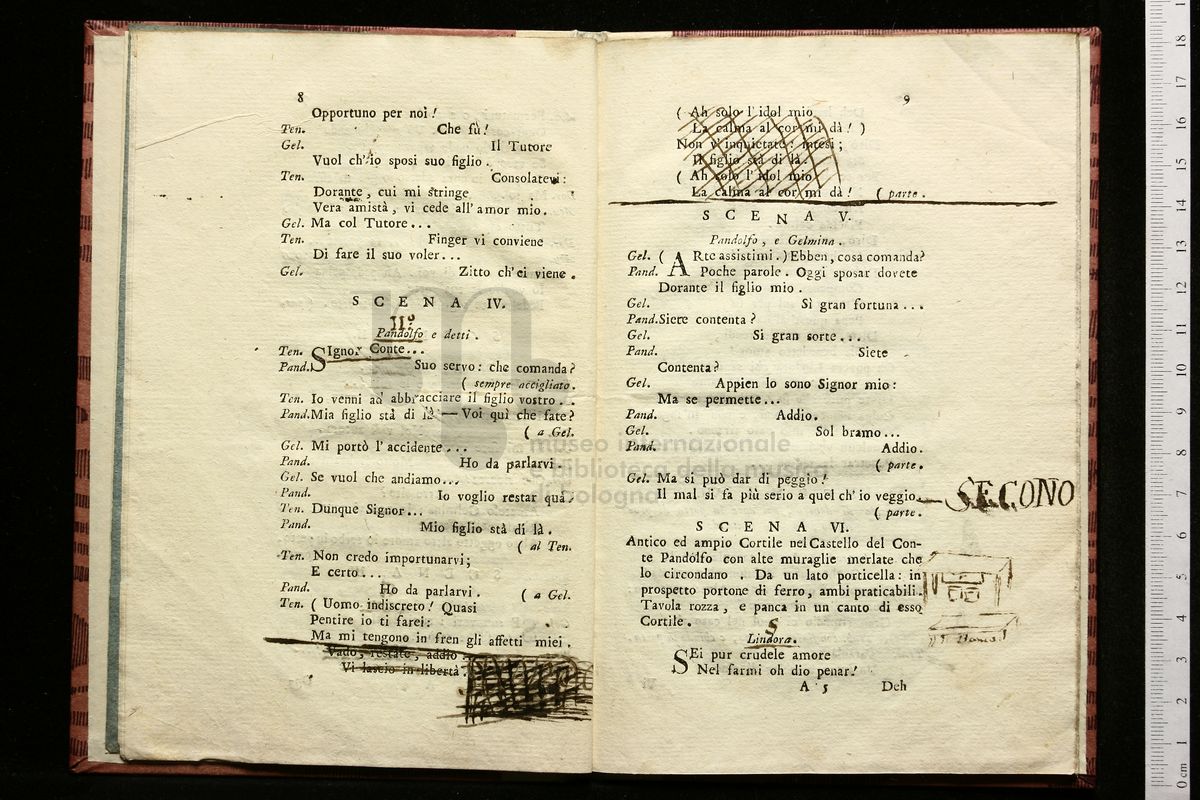 8
Opportuno per noi!
Ten. Che fù!
Gel. Il Tutore
Vuol ch'io sposi suo figlio.
Ten. Consolatevi:
Dorante, cui mi stringe
Vera amistà, vi cede all'amor mio.
Gel. Ma col Tutore...
Ten. Finger vi conviene
Di fare il suo voler...
Gel. Zitto ch'ei viene.
SCENA IV.
IIº
Pandolfo e detti.
Ten. SIgnor Conte...
Pand. Suo servo: che comanda?
( sempre accigliato.
Ten. Io venni ad abbracciare il figlio vostro..
Pand. Mia figlio stà di là — Voi quì che fate?
( a Gel.
Gel. Mi portò l'accidente...
Pand. Ho da parlarvi.
Gel. Se vuol che andiamo...
Pand. Io voglio restar quà.
Ten. Dunque Signor...
Pand. Mio figlio stà di là.
( al Ten.
Ten. Non credo importunarvi;
E certo...
Pand. Ho da parlarvi. ( a Gel.
Ten. ( Uomo indiscreto! Quasi
Pentire io ti farei:
Ma mi tengono in fren gli affetti miei.
Vado, restate, addio
Vi lascio in libertà
9
( Ah solo l'idol mio
La calma al cor mi dà! )
Non v'inquietate: intesi;
Il figlio stà di là.
( Ah solo l'idol mio
La calma al cor mi dà! ( parte.
SCENA V.
Pandolfo, e Gelmina.
Gel. ( ARte assistimi.) Ebben, cosa comanda?
Pand. Poche parole. Oggi sposar dovete
Dorante il figlio mio.
Gel. Sì gran fortuna...
Pand. Siete contenta?
Gel. Sì gran sorte...
Pand. Siete
Contenta?
Gel. Appien lo sono Signor mio:
Ma se permette...
Pand. Addio.
Gel. Sol bramo...
Pand. Addio.
( parte.
Gel. Ma si può dar di peggio!
Il mal si fa più serio a quel ch'io veggio.
SECONO
( parte.
SCENA VI.
Antico ed ampio Cortile nel Castello del Con-
te Pandolfo con alte muraglie merlate che
lo circondano. Da un lato porticella: in
prospetto portone di ferro, ambi praticabili.
Tavola rozza, e panca in un canto di esso
Cortile.
S
Lindora.
SEi pur crudele amore
Nel farmi oh dio penar!
A 5 Deh
museo internazionale
e biblioteca della musica
di bologna
0 cm 1 2 3 4 5 6 7 8 9 10 11 12 13 14 15 16 17 18